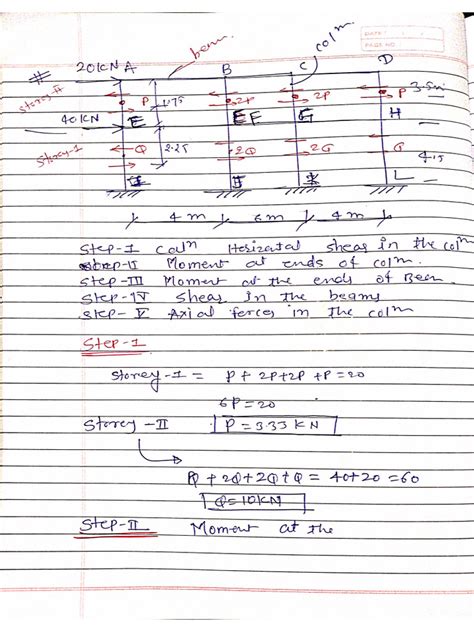 DATE :
PAGE NO
beam
colm
# 20KN A B C D
Storey-II P 1.75 2P 2P P 3.5m
40KN E F G H
Storey-1 Q 2.25 2Q 2Q Q 4.5
I J K L
4m 6m 4m
Step-I Coln Horizatal shear in the colm
Step-II Moment at ends of colm.
Step-III Moment at the ends of Beam
Step-IV Shear in the beams
Step-V Axial forces in the colm
Step-1
Storey-1 = P + 2P+2P +P = 20
6P=20
Storey -II P = 3.33 KN
Q + 2Q+2Q+Q = 40+20 =60
Q=10KN
Step-II Moment at the